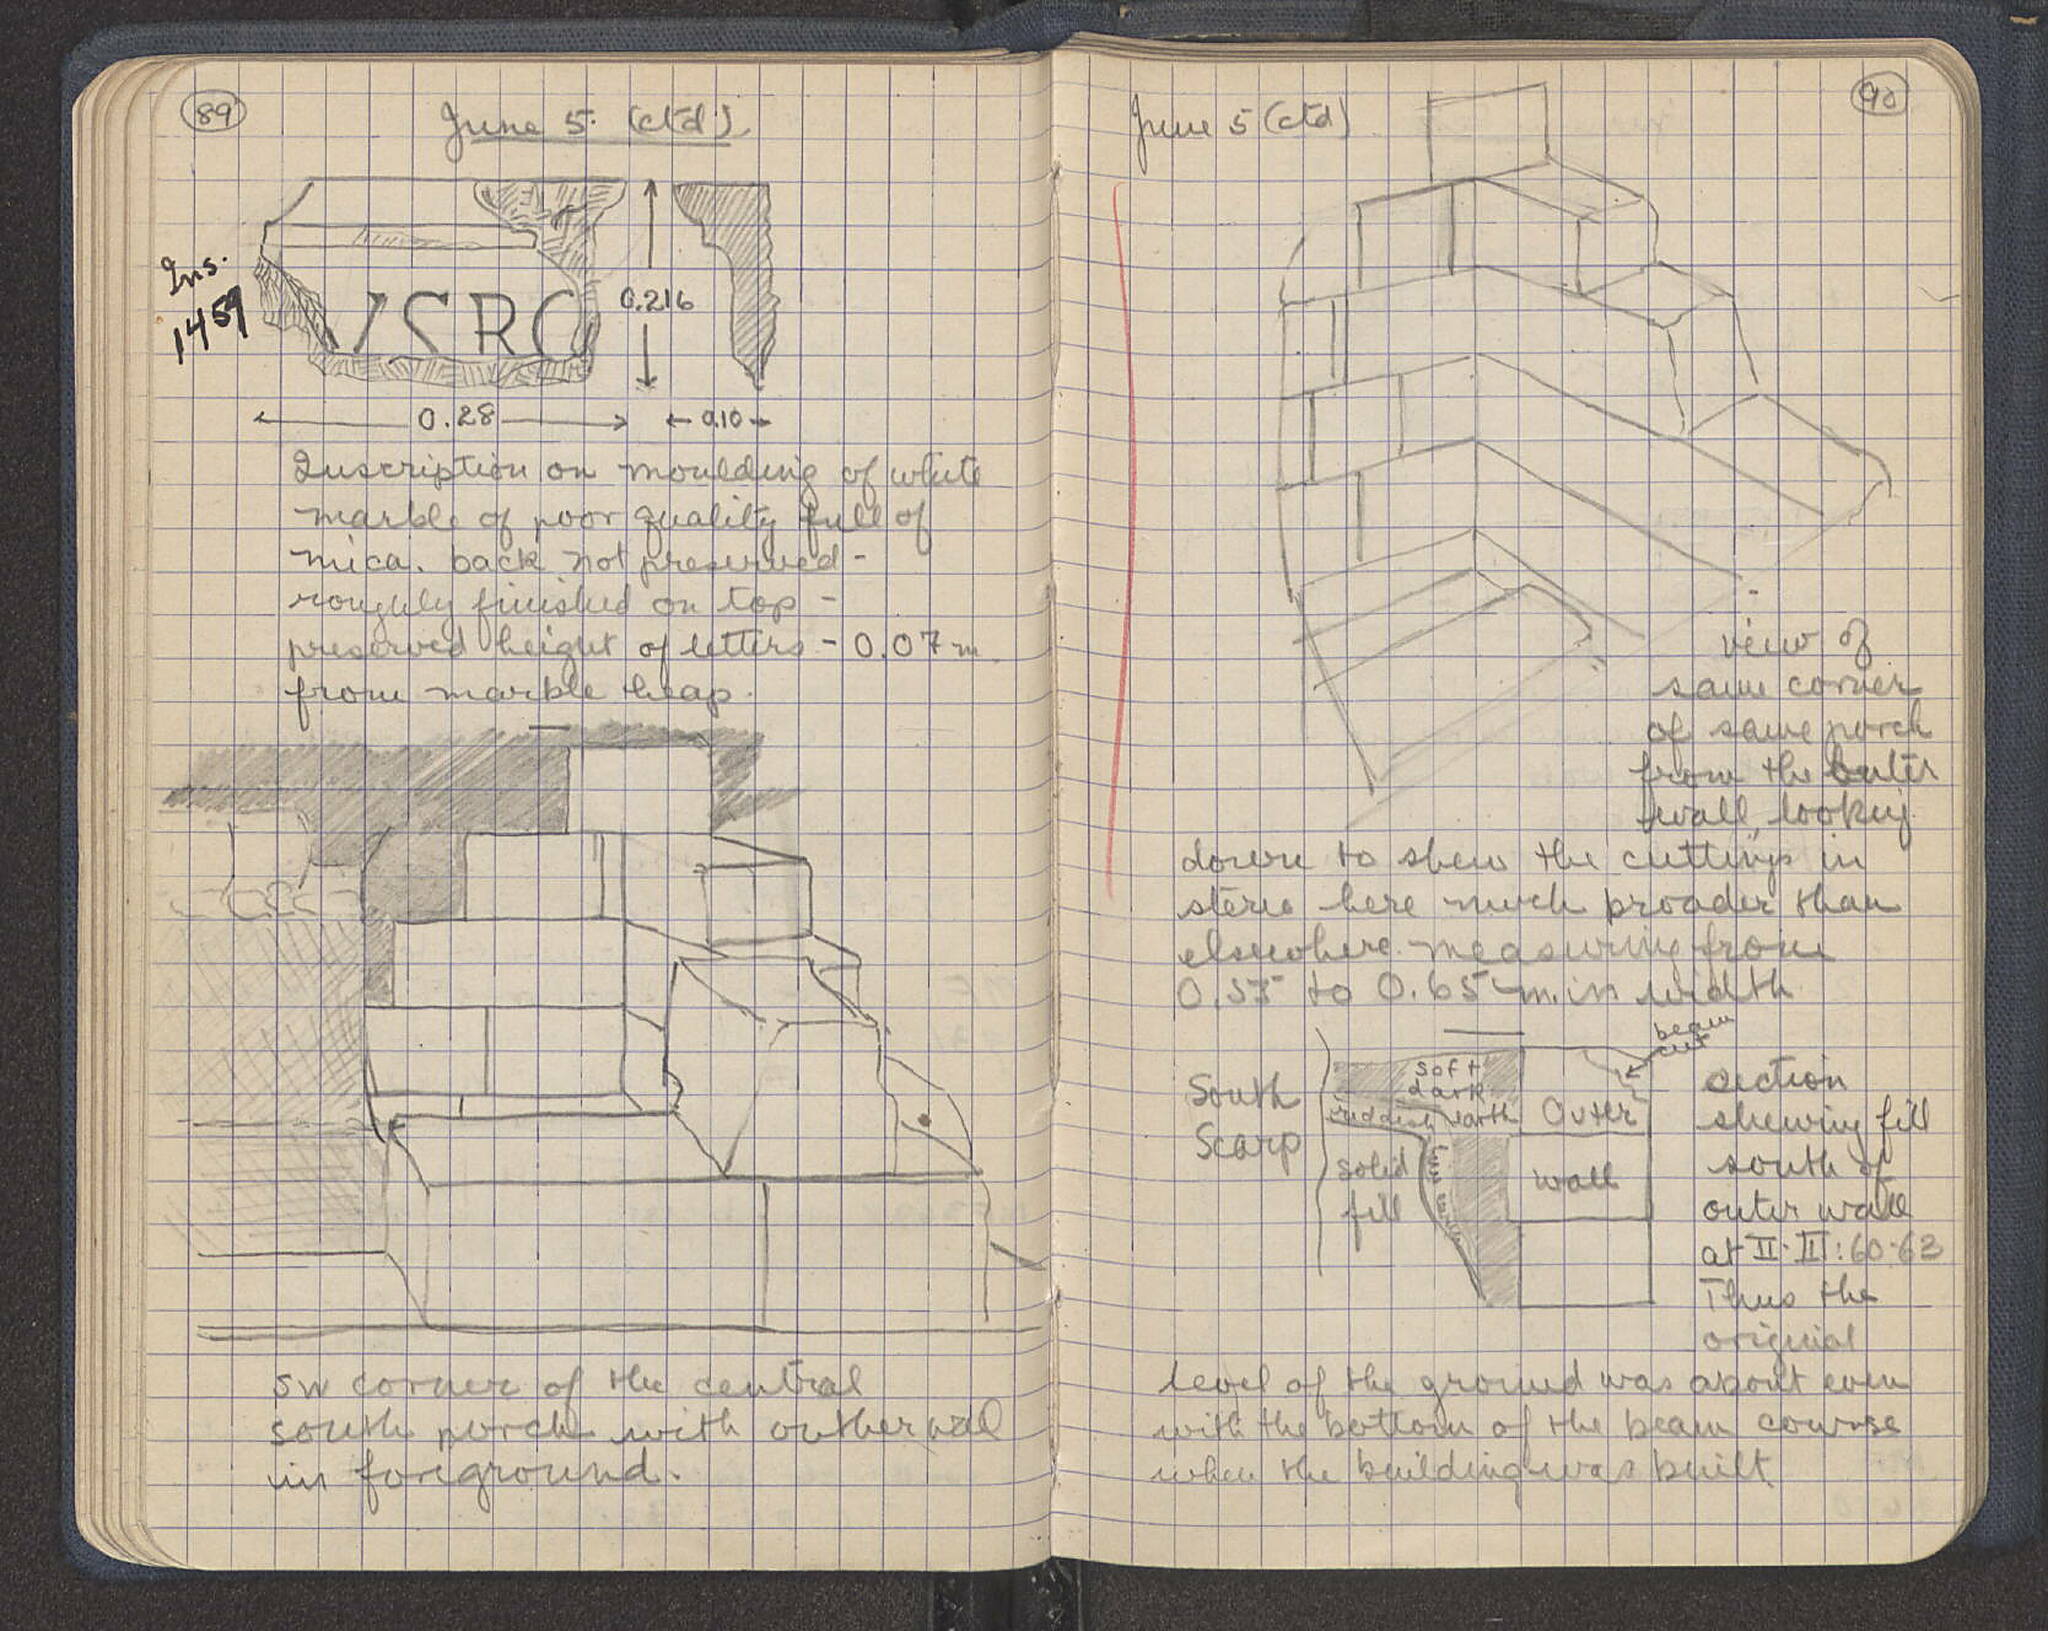 89
June 5. (ctd.)
Ins.
1459
VSRO
0.216
0.28
0.10
Inscription on moulding of white
marble of poor quality full of
mica. back not preserved -
roughly finished on top -
preserved height of letters - 0.07 m.
from marble heap.
SW corner of the central
south porch with outher wall
in foreground.
90
June 5 (ctd)
view of
same corner
of same porch
from the outer
wall, looking
down to shew the cuttings in
stereo here much broader than
elsewhere measuring from
0.55 to 0.65 m. in width
beam
cut
South
Scarp
soft
dark
reddish earth
solid
fill
Outer
wall
section
shewing fill
south of
outer wall
at II-III:60-63
Thus the
original
level of the ground was about even
with the bottom of the beam course
when the building was built.